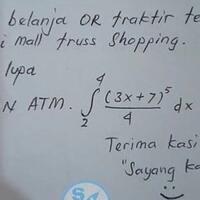 belanja OR traktir te
i mall truss Shopping.
lupa
N ATM. ∫₂⁴ (3x+7)⁵/4 dx
Terima kasi
"Sayang ka